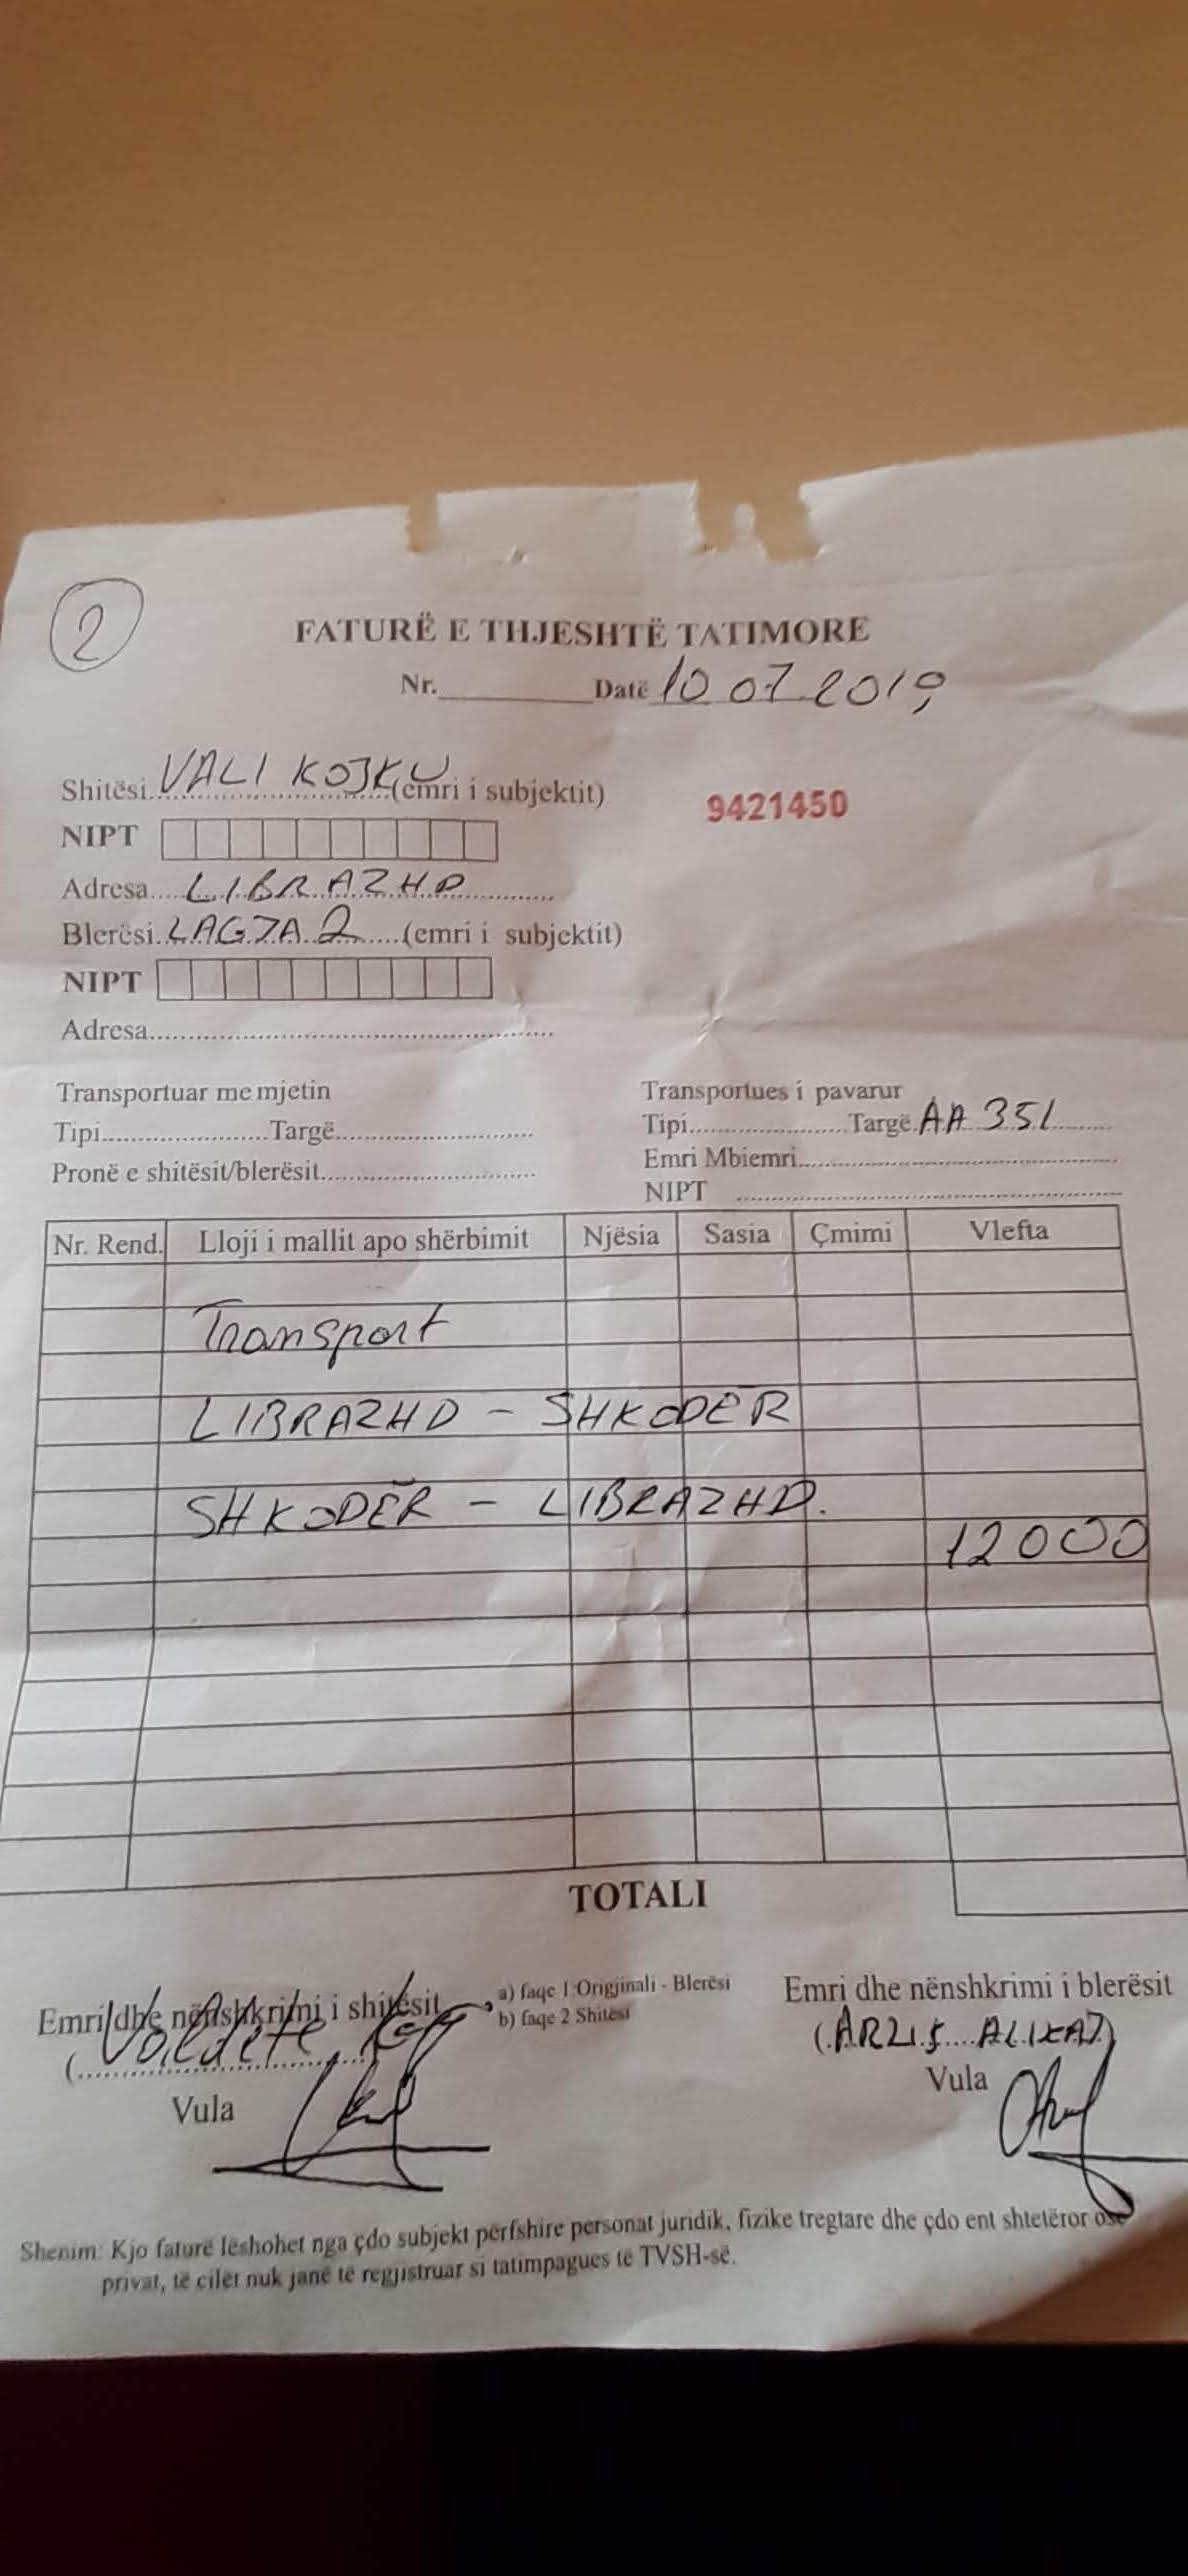 2
FATURË E THJESHTË TATIMORE
Nr.__________Datë 10 07 2019
Shitësi VALI KOJKU (emri i subjektit)
9421450
NIPT
Adresa....LIBRAZHD
Blerësi LAGJA 2 (emri i subjektit)
NIPT
Adresa
Transportuar me mjetin
Tipi........Targë
Pronë e shitësit/blerësit
Transportues i pavarur
Tipi........Targë AA 351
Emri Mbiemri
NIPT
Nr. Rend. Lloji i mallit apo shërbimit Njësia Sasia Çmimi Vlefta
Transport
LIBRAZHD - SHKODER
SHKODËR - LIBRAZHD.
12000
TOTALI
Emri dhe nënshkrimi i shitësit
a) faqe 1 Origjinali - Blerësi
b) faqe 2 Shitësi
Vula
Emri dhe nënshkrimi i blerësit
Vula
Shenim: Kjo faturë lëshohet nga çdo subjekt përfshire personat juridik, fizike tregtare dhe çdo ent shtetëror ose
privat, të cilët nuk janë të regjistruar si tatimpagues të TVSH-së.